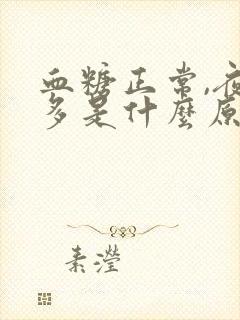 血糖正常,夜
多是什麼原
素瀅